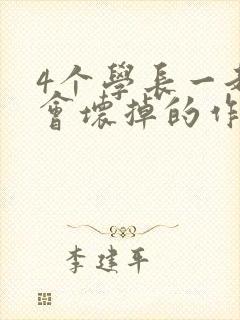 4个學長一
會壞掉的作
李建平